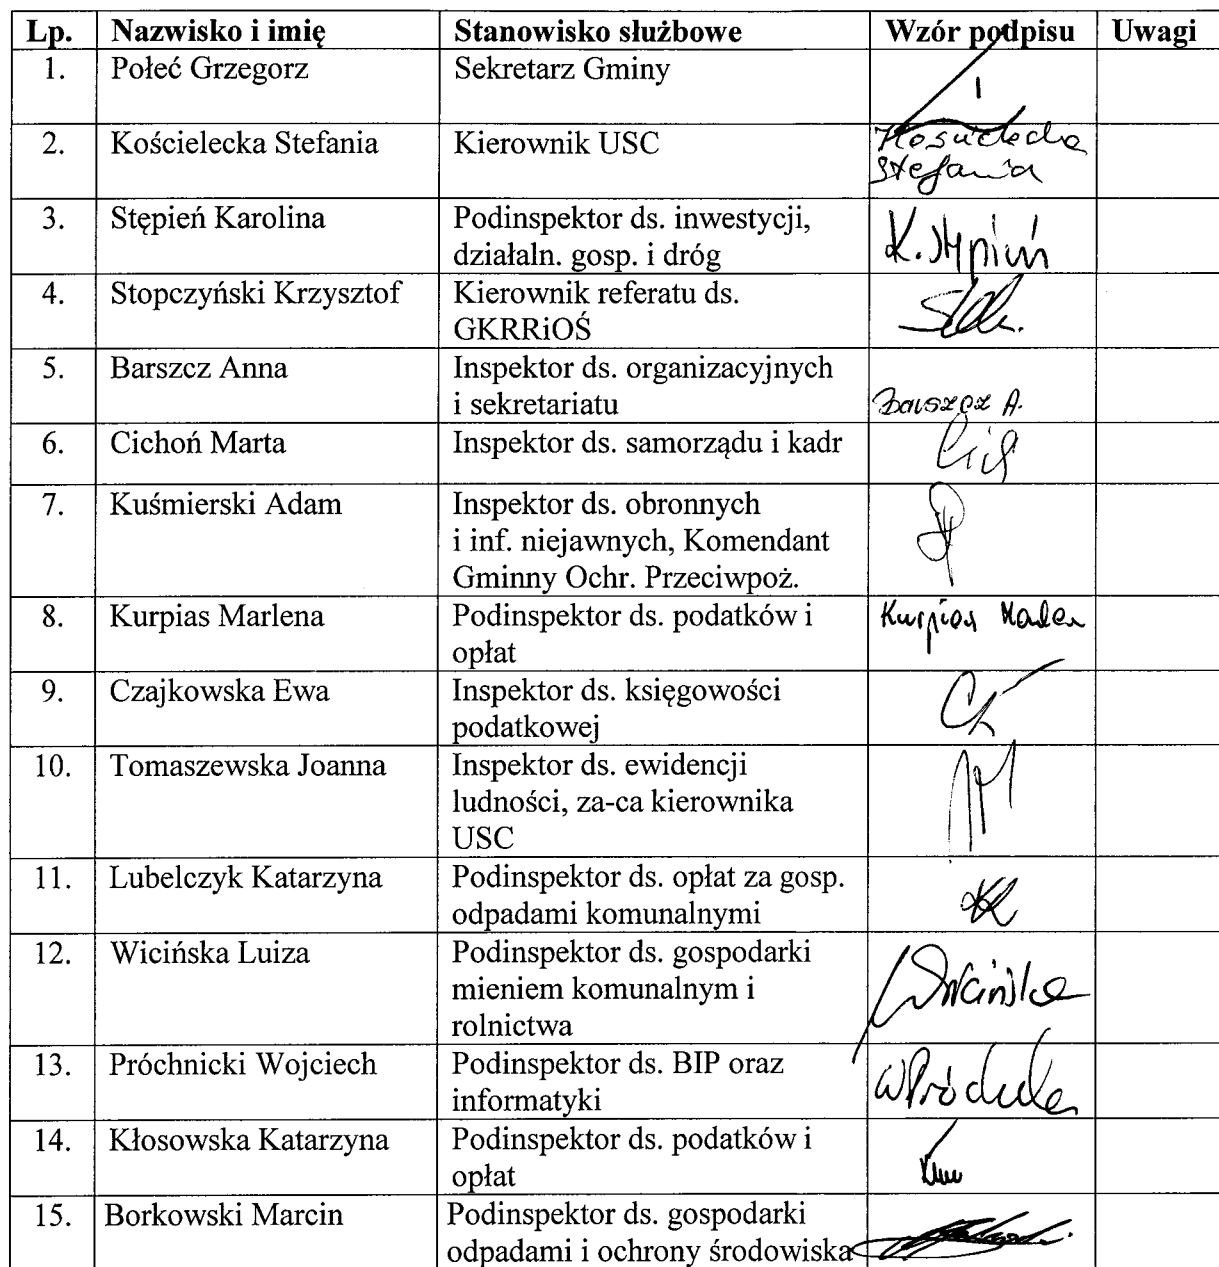 Lp. Nazwisko i imię Stanowisko służbowe Wzór podpisu Uwagi
1. Połeć Grzegorz Sekretarz Gminy
2. Kościelecka Stefania Kierownik USC Kościelecka
Stefania
3. Stępień Karolina Podinspektor ds. inwestycji,
działaln. gosp. i dróg K. Stępień
4. Stopczyński Krzysztof Kierownik referatu ds.
GKRRiOŚ
5. Barszcz Anna Inspektor ds. organizacyjnych
i sekretariatu Barszcz A.
6. Cichoń Marta Inspektor ds. samorządu i kadr
7. Kuśmierski Adam Inspektor ds. obronnych
i inf. niejawnych, Komendant
Gminny Ochr. Przeciwpoż.
8. Kurpias Marlena Podinspektor ds. podatków i Kurpias
opłat
9. Czajkowska Ewa Inspektor ds. księgowości
podatkowej
10. Tomaszewska Joanna Inspektor ds. ewidencji
ludności, za-ca kierownika
USC
11. Lubelczyk Katarzyna Podinspektor ds. opłat za gosp.
odpadami komunalnymi
12. Wicińska Luiza Podinspektor ds. gospodarki
mieniem komunalnym i Wicińska
rolnictwa
13. Próchnicki Wojciech Podinspektor ds. BIP oraz
informatyki
14. Kłosowska Katarzyna Podinspektor ds. podatków i
opłat
15. Borkowski Marcin Podinspektor ds. gospodarki
odpadami i ochrony środowiska